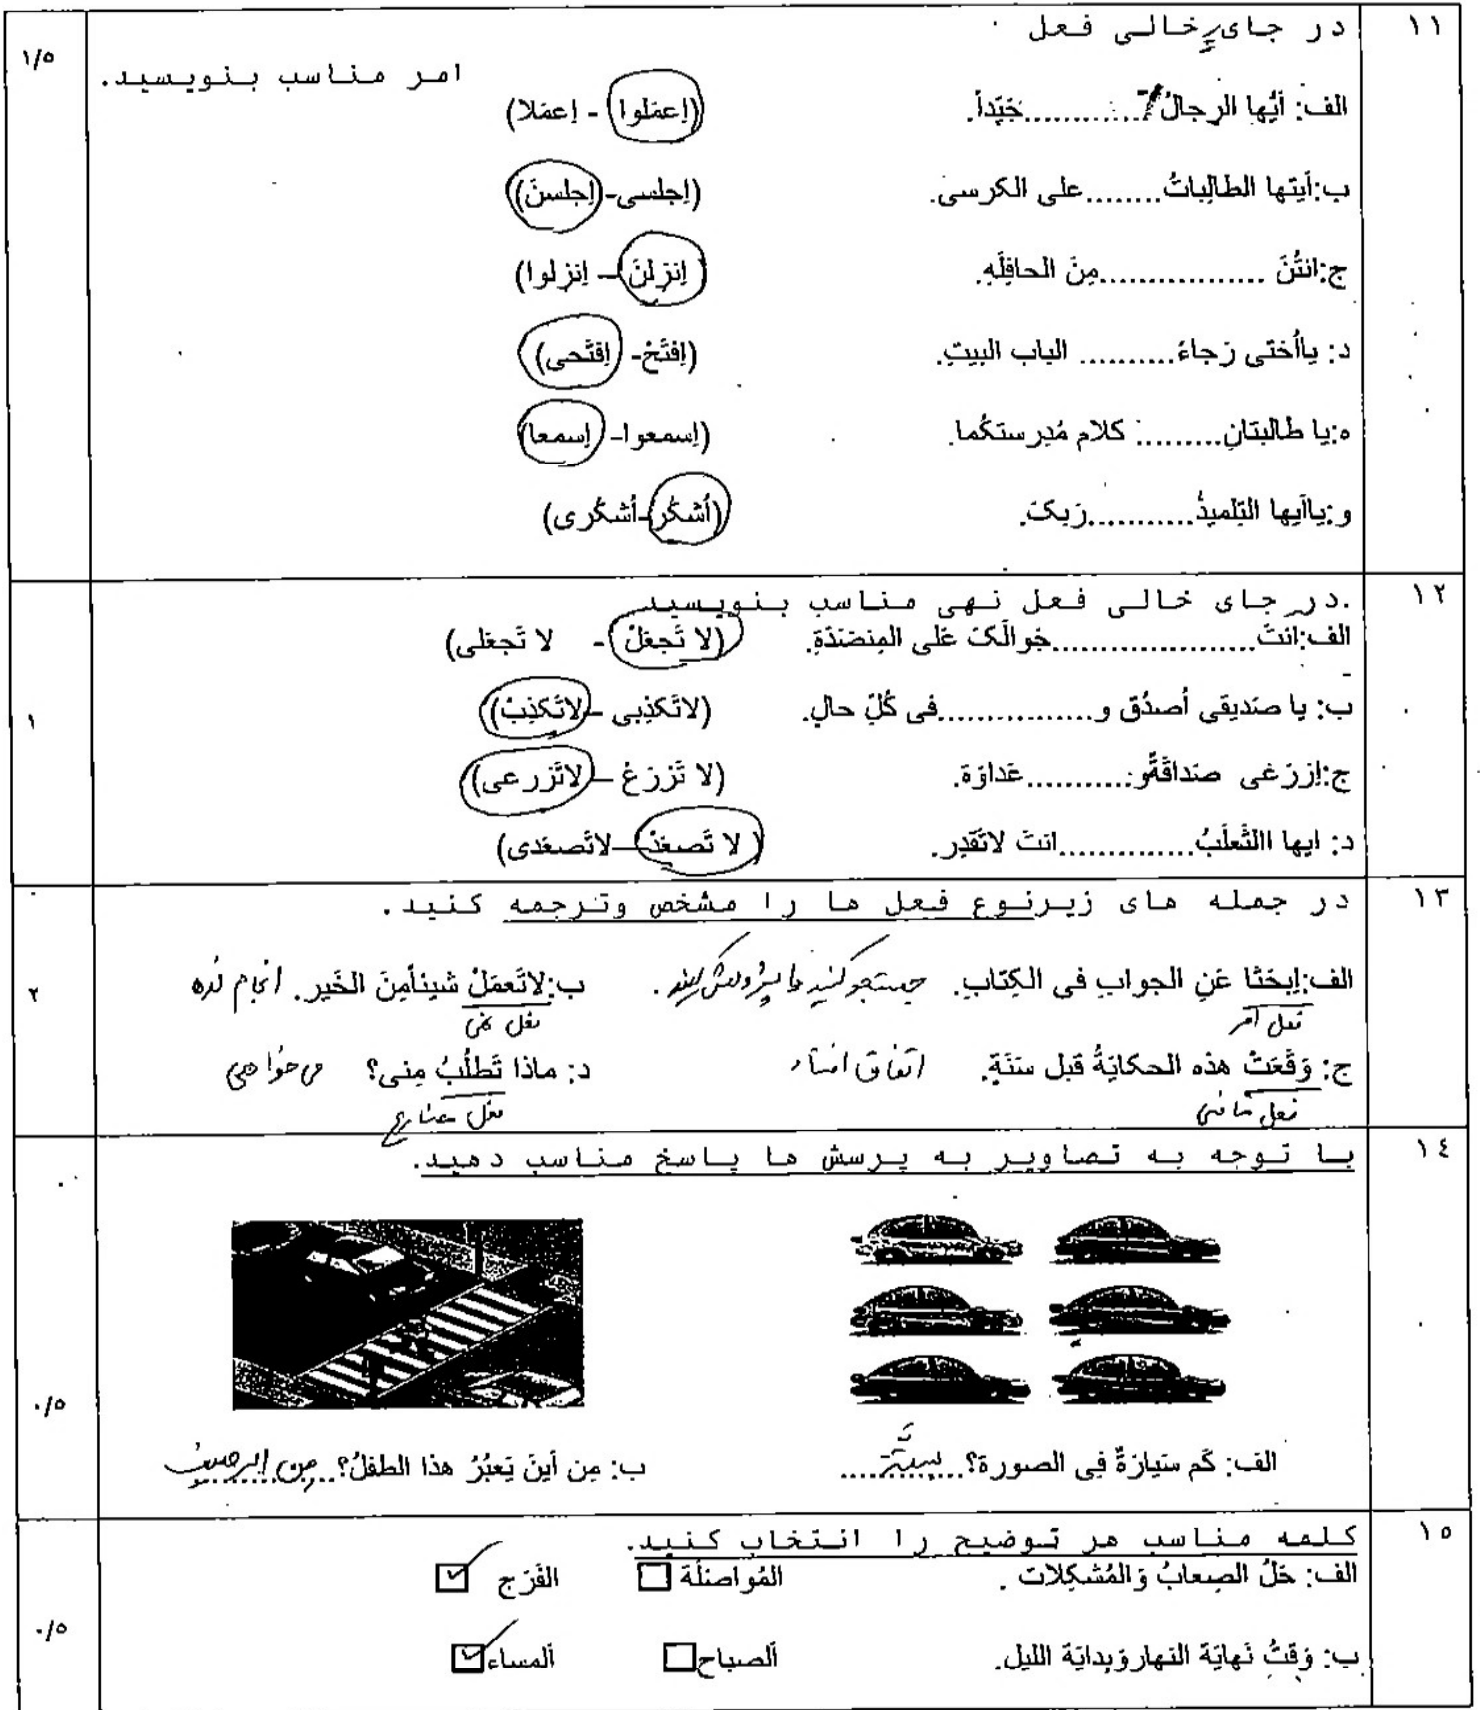 ۱۱ در جای خالی فعل
امر مناسب بنویسید. ۱/۵
الف: اَیُّها الرِجالُ ............جَیِّداً. (اِعمَلوا - اِعمَلا)
ب:اَیتها الطالِباتُ........علی الکرسی. (اِجلسی-اِجلسنَ)
ج:انتُنَ ................مِنَ الحافِلَهِ. (اِنزِلنَ – اِنزلوا)
د: یااُختی رَجاءً.......... الباب البیتِ. (اِفتَحْ- اِفتَحی)
ه:یا طالبتانِ......... کلام مُدِرستکُما. (اِسمعوا- اِسمعا)
و:یااَیها التِلمیذُ...........رَبکَ. (اُشکُر-اُشکُری)
۱۲ .در جای خالی فعل نهی مناسب بنویسید
الف:انتَ.....................جَوالَکَ عَلی المِنضَدَةِ. (لا تَجعَلْ - لا تَجعَلی)
ب: یا صَدیقی اُصدُق و................فی کُلِّ حالٍ. (لاتَکذِبی –لاتَکذِبْ) ۱
ج:اِزرَعی صَداقَةًو...........عَداوَة. (لا تَزرَعْ –لاتَزرعی)
د: ایها االثَعلَبُ..............انتَ لاتَقدِر. (لا تَصعَدْ –لاتَصعَدی)
۱۳ در جمله های زیرنوع فعل ها را مشخص وترجمه کنید.
الف:اِبحَثا عَنِ الجوابِ فی الکِتابِ. جستجو کنید ب:لاتَعمَلْ شیئاًمِنَ الخَیر. انجام نده ۲
فعل امر فعل نهی
ج: وَقَعَتْ هذه الحکایَةُ قبل سَنَةٍ. اتفاق افتاد د: ماذا تَطلُبُ مِنی؟ می خواهی
فعل ماضی فعل مضارع
۱٤ با توجه به تصاویر به پرسش ها پاسخ مناسب دهید.
۰/۵
الف: کَم سَیارَةً فِی الصورة؟ سِتَّة ب: مِن اَینَ یَعبُرُ هذا الطفلُ؟ مِن الرصیف
۱۵ کلمه مناسب هر توضیح را انتخاب کنید.
الف: حَلُّ الصِعابُ وَالمُشکِلات . المُواصَلَة الفَرَج
ب: وَقتُ نَهایَة النهاروَبِدایَة اللیل. اَلصباح اَلمساء ۰/۵